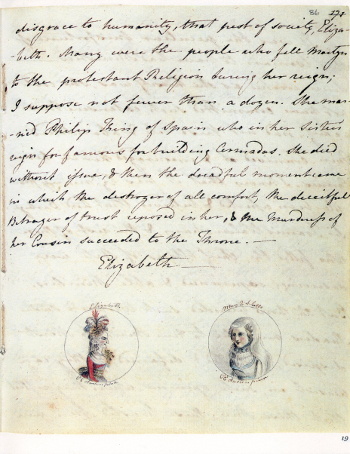 86 171
disgrace to humanity, that pest of society, Eliza-
-beth. Many were the people who fell Martyrs
to the protestant Religion during her reign;
I suppose not fewer than a dozen. She mar-
-ried Philip King of Spain who in her Sister's
reign for famous for building Armadas. She died
without issue, & then the dreadful moment came
in which the destroyer of all comfort, the deceitful
Betrayer of trust reposed in her, & the Murderess of
her Cousin succeeded to the Throne. —
Elizabeth —
Elizabeth Mary Q of Scots
C E Austen pinxit C E Austen pinxit
19